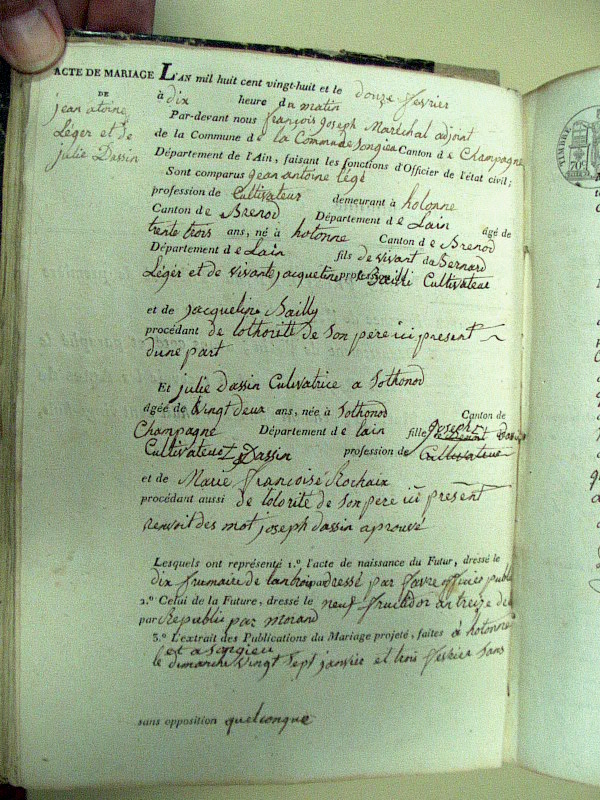 ACTE DE MARIAGE
DE
jean atoine
Léger et de
julie Dassin
L'AN mil huit cent vingt-huit et le douze fevrier
à dix heure du matin
Par-devant nous françois joseph Maréchal adjoint
de la Commune de la Commune de songieu Canton de Champagne
Département de l'Ain, faisant les fonctions d'Officier de l'état civil;
Sont comparus jean antoine légé
profession de Cultivateur demeurant à hotonne
Canton de Brenod Département de Lain âgé de
trente trois ans, né à hotonne Canton de Brenod
Département de Lain fils de vivant da Bernard
Léger et de vivante jacqueline profession de Cultivateur
et de jacqueline Bailly
procédant de lothorité de son père ici present
dune part
Et julie dassin Culivatrice a Sothonod
âgée de vingt deux ans, née à Sothonod Canton de
Champagne Département de lain fille joseph
Cultivateur Dassin profession de Cultivateur
et de Marie françoise Rochaix
procédant aussi de lotorité de son père ici present
renvoit des mot joseph dassin aprouvé
Lesquels ont représenté 1.º l'acte de naissance du Futur, dressé le
dix frumaire de lantrois par dressé par favre officier public
2.º Celui de la Future, dressé le neuf fructidor an treize de
par Republic par morand
3.º L'extrait des Publications du Mariage projeté, faites à hotonne
et a songieu
le dimanche vingt sept janvier et trois fevrier sans
sans opposition quelconque
TIMBRE